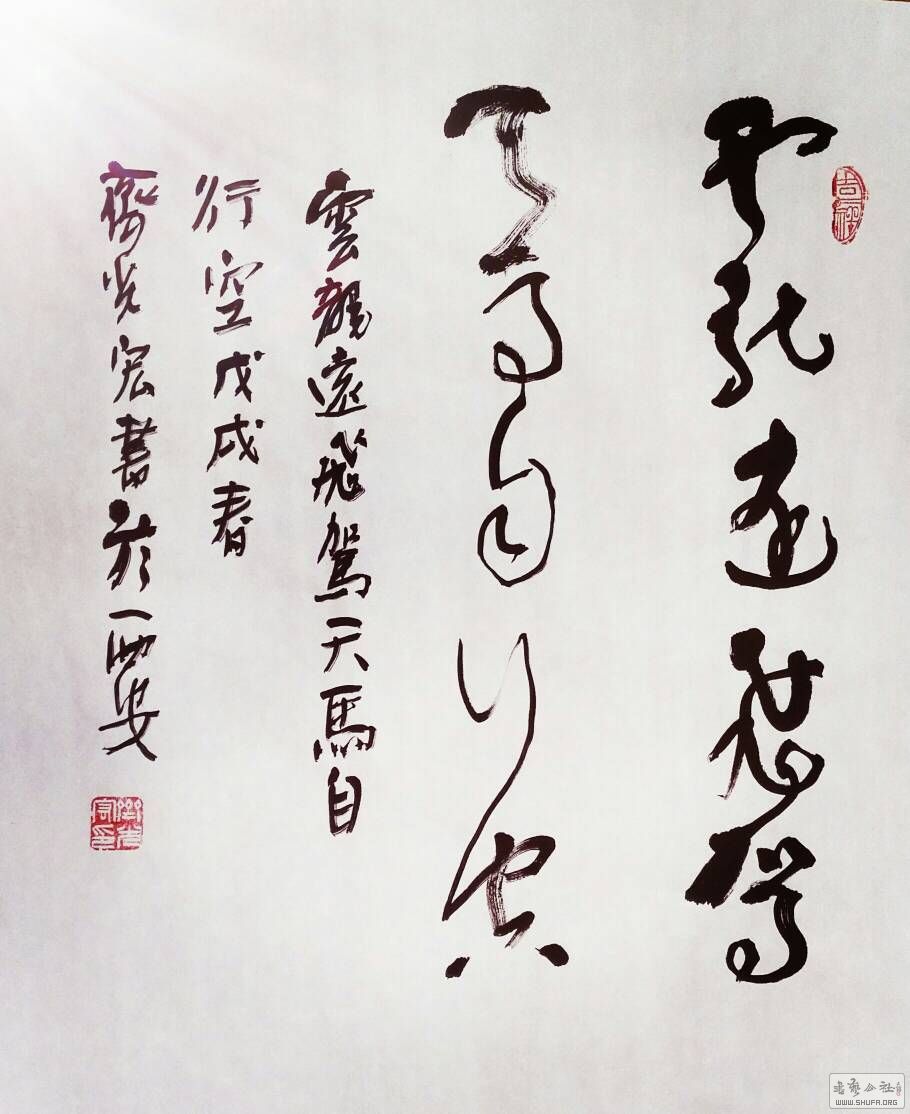 雲龍遠飛駕
天馬自行空
雲龍遠飛駕天馬自
行空戊戌春
齊光宏書於西安
吉祥
書藝公社
WWW.SHUFA.ORG